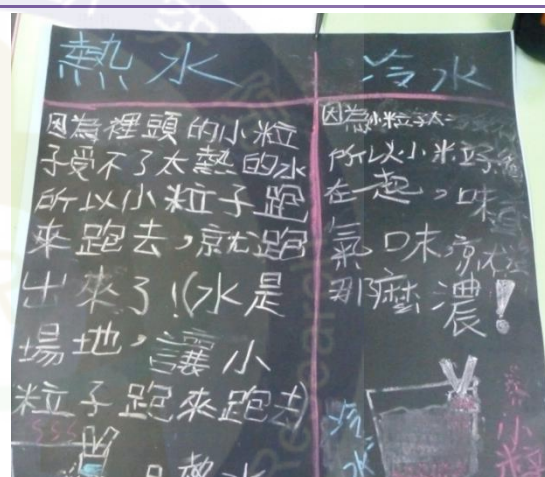 熱水
因為裡頭的小粒
子受不了太熱的水
所以小粒子跑
來跑去，就跑
出來了！(水是
場地，讓小
粒子跑來跑去)
熱水
冷水
因為小粒子太
所以小粒子
在一起，味
氣口味就
那麼濃！
冷水
小粒